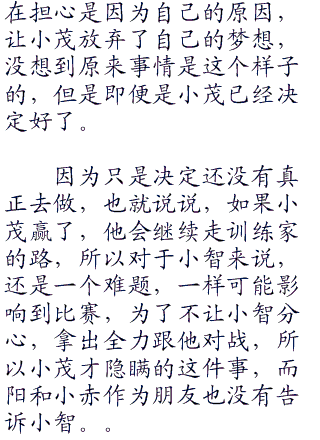 在担心是因为自己的原因，
让小茂放弃了自己的梦想，
没想到原来事情是这个样子
的，但是即便是小茂已经决
定好了。
因为只是决定还没有真
正去做，也就说说，如果小
茂赢了，他会继续走训练家
的路，所以对于小智来说，
还是一个难题，一样可能影
响到比赛，为了不让小智分
心，拿出全力跟他对战，所
以小茂才隐瞒的这件事，而
阳和小赤作为朋友也没有告
诉小智。。